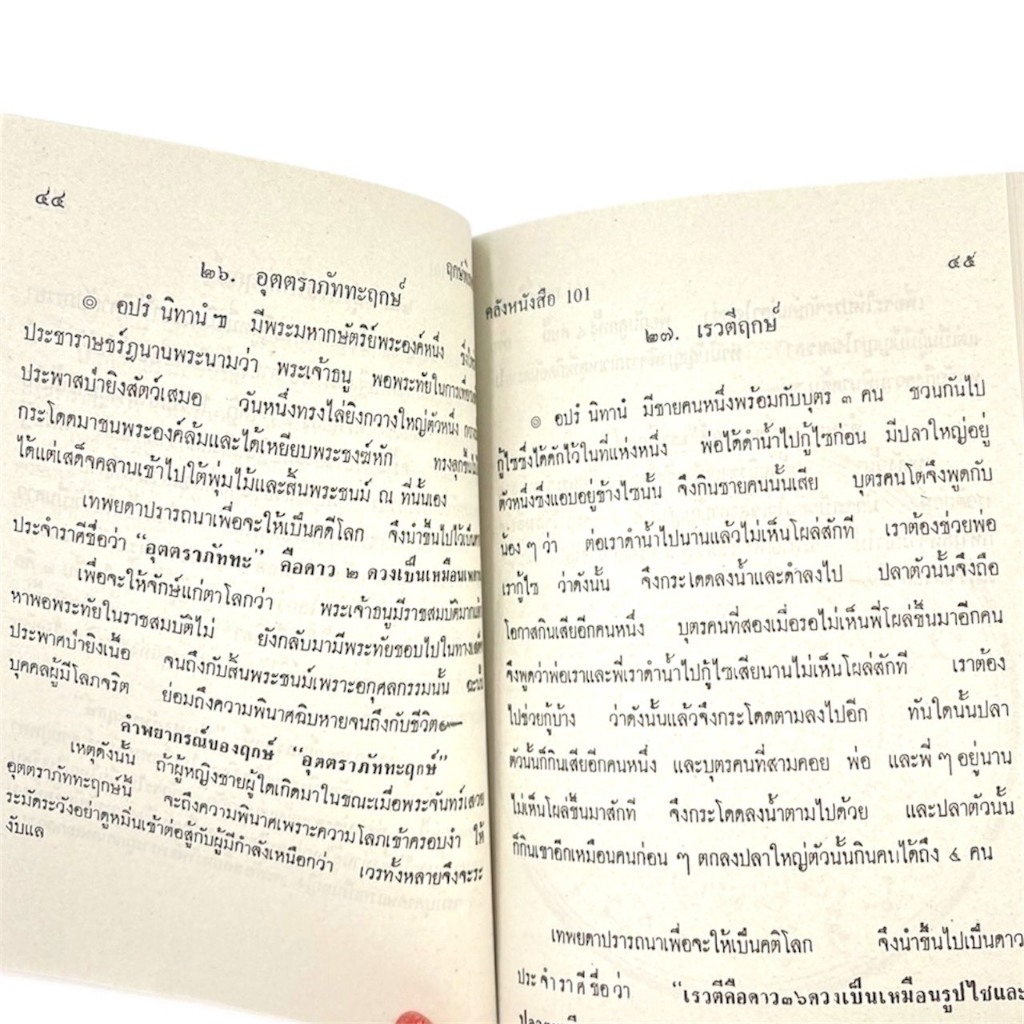 ๔๔
ฤกษ์
๒๖. อุตตราภัททะฤกษ์
๏ อปรํ นิทานํ ฯ มีพระมหากษัตริย์พระองค์หนึ่ง ซึ่ง
ประชาราษชร์ฎนานพระนามว่า พระเจ้าธนู พอพระทัยในการ
ประพาสป่ายิงสัตว์เสมอ วันหนึ่งทรงไล่ยิงกวางใหญ่ตัวหนึ่ง
กระโดดมาชนพระองค์ล้มและได้เหยียบพระชงฆ์หัก ทรงลุกขึ้น
ได้แต่เสด็จคลานเข้าไปใต้พุ่มไม้และสิ้นพระชนม์ ณ ที่นั้นเอง
เทพยดาปรารถนาเพื่อจะให้เป็นคดีโลก จึงนำขึ้นไปไว้เป็น
ประจำราศีชื่อว่า “อุตตราภัททะ” คือดาว ๒ ดวงเป็นเหมือน
เพื่อจะให้จักษ์แก่ตาโลกว่า พระเจ้าธนูมีราชสมบัติมาก
หาพอพระทัยในราชสมบัติไม่ ยังกลับมามีพระทัยชอบไปในทาง
ประพาศป่ายิงเนื้อ จนถึงกับสิ้นพระชนม์เพราะอกุศลกรรมนั้น
บุคคลผู้มีโลภจริต ย่อมถึงความพินาศฉิบหายจนถึงกับชีวิต๛
คำพยากรณ์ของฤกษ์ “อุตตราภัททะฤกษ์”
เหตุดังนั้น ถ้าผู้หญิงชายผู้ใดเกิดมาในขณะเมื่อพระจันทร์เสวย
อุตตราภัททะฤกษ์นี้ จะถึงความพินาศเพราะความโลภเข้าครอบงำ ให้
ระมัดระวังอย่าดูหมิ่นเข้าต่อสู้กับผู้มีกำลังเหนือกว่า เวรทั้งหลายจึงจะระ
งับแล
๔๕
คลังหนังสือ 101
๒๗. เรวตีฤกษ์
๏ อปรํ นิทานํ มีชายคนหนึ่งพร้อมกับบุตร ๓ คน ชวนกันไป
กู้ไซซึ่งได้ดักไว้ในที่แห่งหนึ่ง พ่อได้ดำน้ำไปกู้ไซก่อน มีปลาใหญ่อยู่
ตัวหนึ่งซึ่งแอบอยู่ข้างไซนั้น จึงกินชายคนนั้นเสีย บุตรคนโตจึงพูดกับ
น้อง ๆ ว่า ต่อเราดำน้ำไปนานแล้วไม่เห็นโผล่สักที เราต้องช่วยพ่อ
เรากู้ไซ ว่าดังนั้น จึงกระโดดลงน้ำและดำลงไป ปลาตัวนั้นจึงถือ
โอกาสกินเสียอีกคนหนึ่ง บุตรคนที่สองเมื่อรอไม่เห็นพี่โผล่ขึ้นมาอีกคน
จึงพูดว่าพ่อเราและพี่เราดำน้ำไปกู้ไซเสียนานไม่เห็นโผล่สักที เราต้อง
ไปช่วยกู้บ้าง ว่าดังนั้นแล้วจึงกระโดดตามลงไปอีก ทันใดนั้นปลา
ตัวนั้นก็กินเสียอีกคนหนึ่ง และบุตรคนที่สามคอย พ่อ และพี่ ๆ อยู่นาน
ไม่เห็นโผล่ขึ้นมาสักที จึงกระโดดลงน้ำตามไปด้วย และปลาตัวนั้น
ก็กินเขาอีกเหมือนคนก่อน ๆ ตกลงปลาใหญ่ตัวนั้นกินคนได้ถึง ๔ คน
เทพยดาปรารถนาเพื่อจะให้เป็นคติโลก จึงนำขึ้นไปเป็นดาว
ประจำราศีชื่อว่า “เรวตีคือดาว๓๖ดวงเป็นเหมือนรูปไซและ